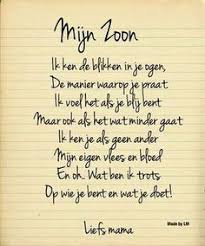 Mijn Zoon
Ik ken de blikken in je ogen,
De manier waarop je praat.
Ik voel het als je blij bent
Maar ook als het wat minder gaat
Ik ken je als geen ander
Mijn eigen vlees en bloed
En oh.. Wat ben ik trots
Op wie je bent en wat je doet!
Liefs mama
Made by LM